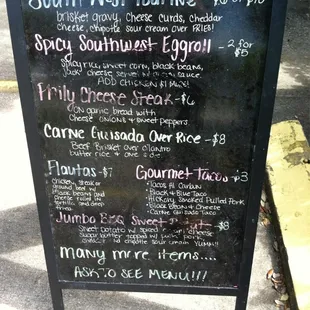 South West Poutine
brisket gravy, cheese curds, cheddar
cheese, chipotle sour cream over FRIES!
Spicy Southwest Eggroll - 2 for $5
spicy rice, sweet corn, black beans,
jack cheese served sauce.
ADD CHICKEN $1 MAX!
Prily Cheese Steak - $6
on garlic bread with
cheese onions & sweet peppers.
Carne Guisada Over Rice - $8
Beef Brisket over cilantro
butter rice & one side
Flautas - $7
chicken, steak or
ground beef w/
black beans and
cheese rolled in
tortilla and deep
fried
Gourmet Tacos $3
• Tacos Al Carbon
• Black & Blue Taco
• Hickory Smoked Pulled Pork
• Black Bean & Cheese
• Carne Guisada Taco
Jumbo BBQ Sweet - $8
Sweet potato w/ spiced
sugar butter topped w/ pulled pork, cheese
and chipotle sour cream YUM!!
many more items....
ASK TO SEE MENU!!!